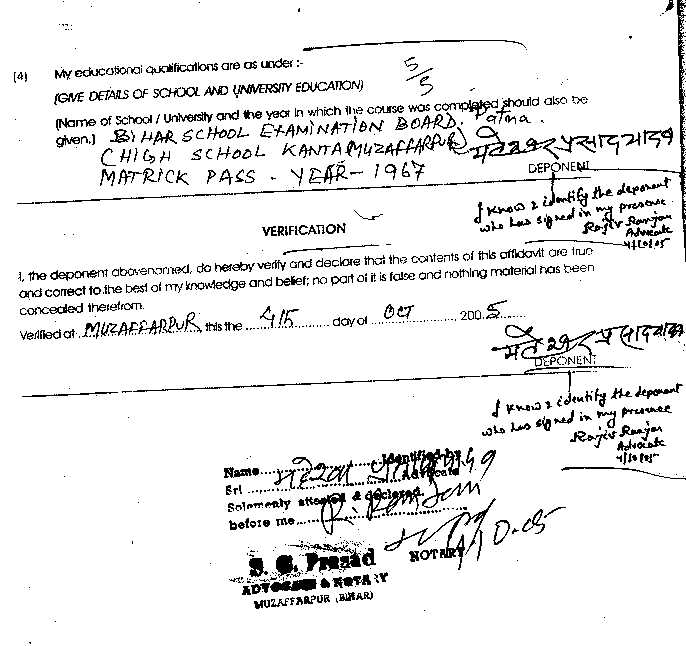 (4) My educational qualifications are as under :-
5/5
(GIVE DETAILS OF SCHOOL AND UNIVERSITY EDUCATION)
(Name of School / University and the year in which the course was completed should also be
given.) BIHAR SCHOOL EXAMINATION BOARD, Patna.
(HIGH SCHOOL KANTA MUZAFFARPUR)
महेश्वर प्रसाद यादव
MATRICK PASS - YEAR - 1967
DEPONENT
I know & identify the deponent
who has signed in my presence
Rajiv Ranjan
Advocate
4/10/05
VERIFICATION
I, the deponent abovenamed, do hereby verify and declare that the contents of this affidavit are true
and correct to the best of my knowledge and belief; no part of it is false and nothing material has been
concealed therefrom.
Verified at MUZAFFARPUR, this the day of OCT 2005
महेश्वर प्रसाद यादव
DEPONENT
I know & identify the deponent
who has signed in my presence
Rajiv Ranjan
Advocate
4/10/05
Name Identified by
Sri Advocate
Solemenly attested & declared
before me
NOTARY
S. G. Prasad
ADVOCATE & NOTARY
MUZAFFARPUR (BIHAR)